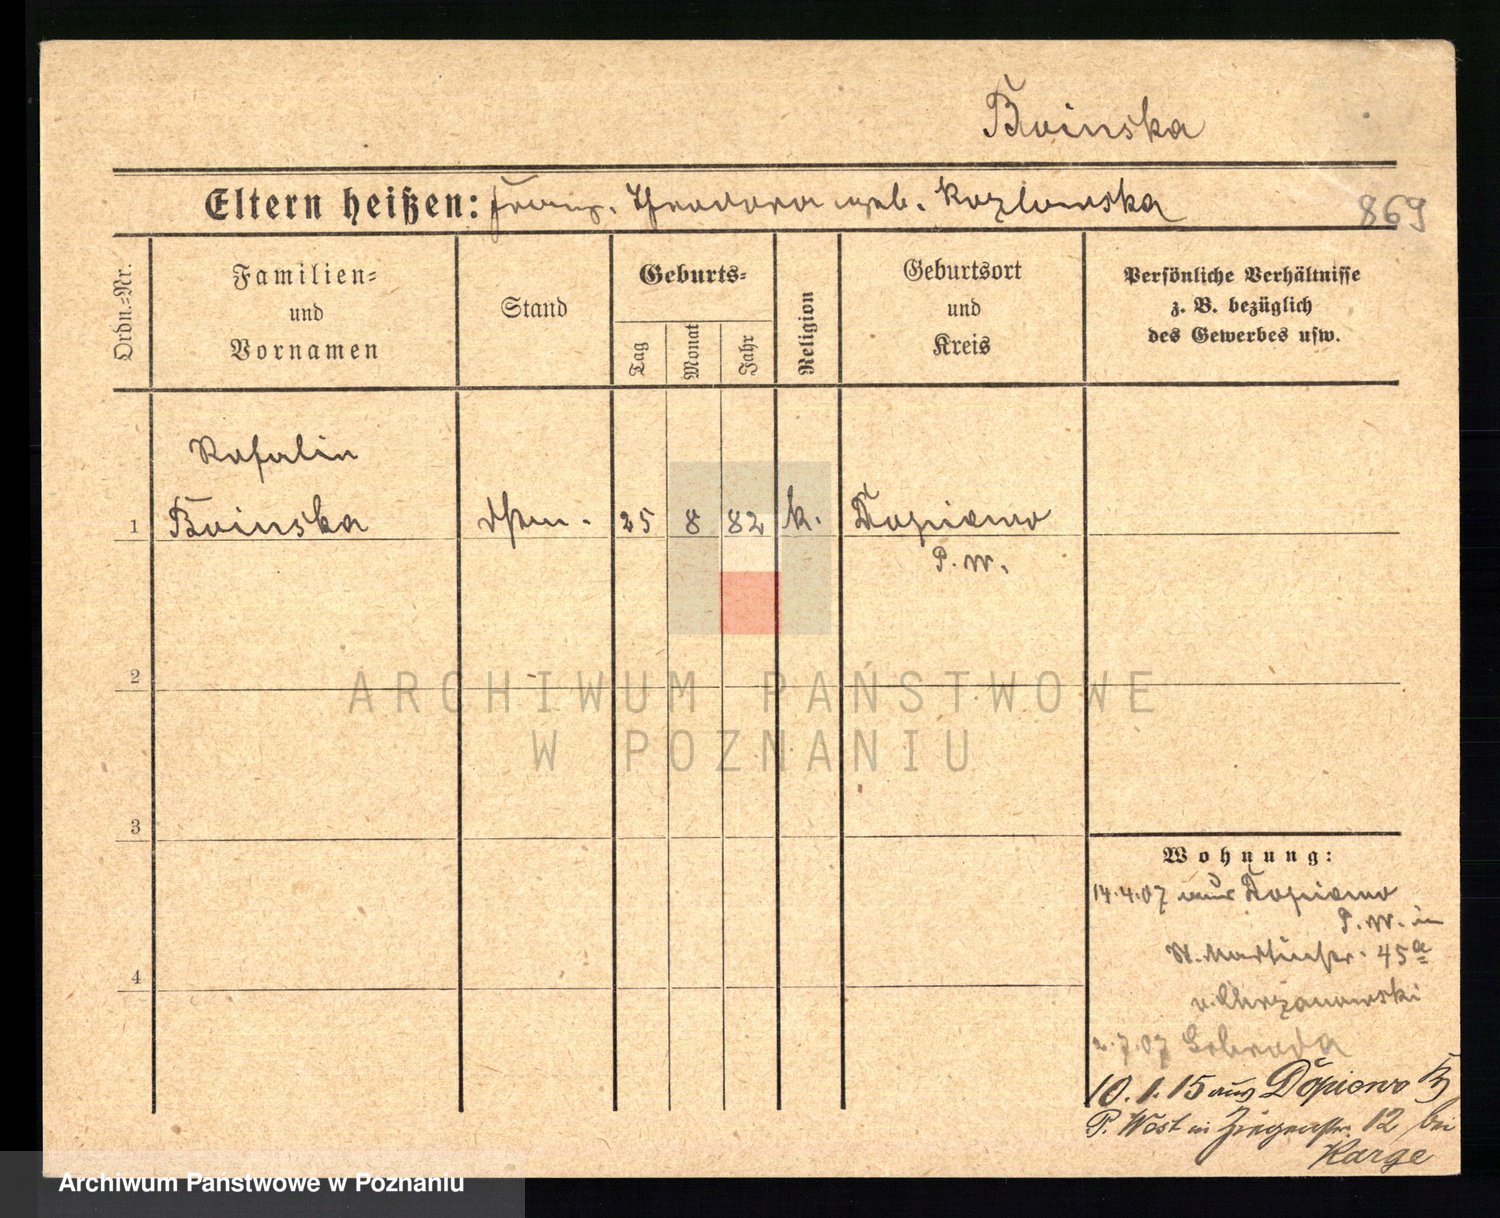 Bninska
Eltern heißen: Franz. Theodora geb. Kozlowska
869
Ordn.=Nr.
Familien=
und
Vornamen
Stand
Geburts=
Tag
Monat
Jahr
Religion
Geburtsort
und
Kreis
Persönliche Verhältnisse
z. B. bezüglich
des Gewerbes usw.
Rosalie
1 Bninska Dstm. 25 8 82 k. Dopiewo
P. W.
2
ARCHIWUM PAŃSTWOWE
W POZNANIU
3
Wohnung:
14.4.07 aus Dopiewo
P. W. in
St. Martinstr. 45a
v. Chrzanowski
4
2.7.07
10.1.15 aus Dopiewo Kr
P. West in Ziegenstr. 12 bei
Karge
Archiwum Państwowe w Poznaniu